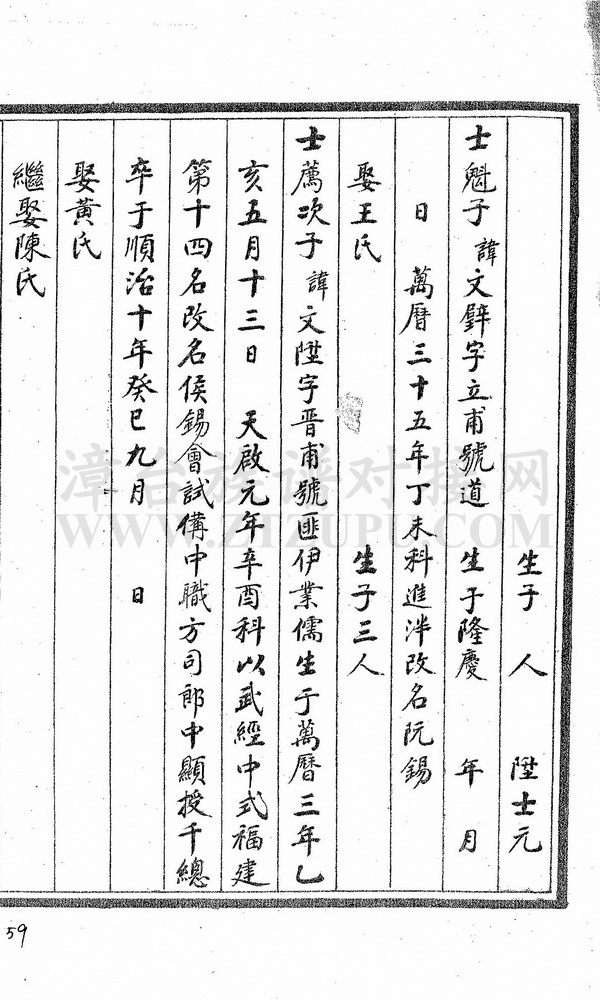 生子 人 陞士元
士魁子 諱文璧字立甫號道 生于隆慶 年 月
日 萬曆三十五年丁未科進泮改名阮錫
娶王氏 生子三人
士薦次子 諱文陞字晋甫號匪伊業儒生于萬曆三年乙
亥五月十三日 天啟元年辛酉科以武經中式福建
第十四名改名侯錫會試備中職方司郎中顯授千總
卒于順治十年癸巳九月 日
娶黃氏
繼娶陳氏
漳台族谱对接网
WWW.ZTZUPU.COM
59